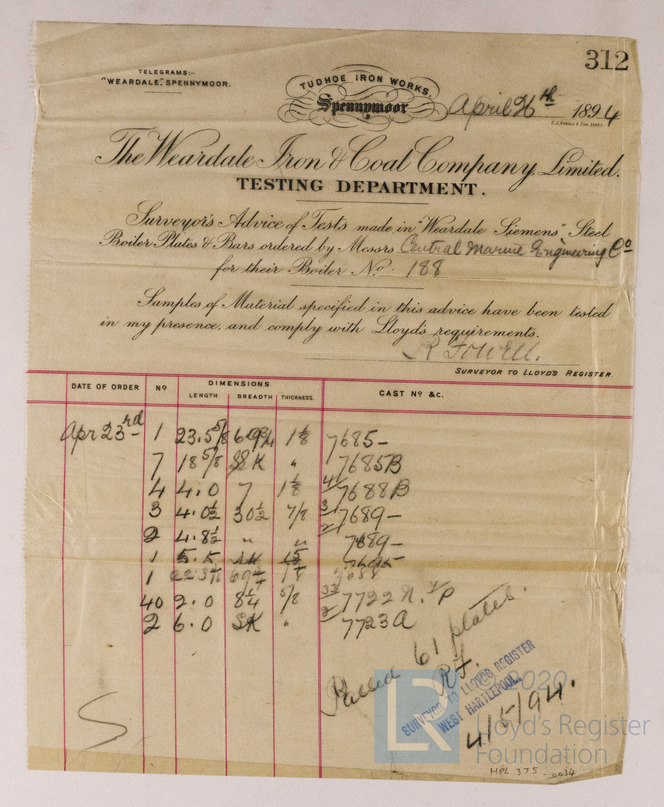 312
TELEGRAMS:-
"WEARDALE," SPENNYMOOR.
TUDHOE IRON WORKS.
Spennymoor
April 26th 1894
The Weardale Iron & Coal Company, Limited.
TESTING DEPARTMENT.
Surveyor's Advice of Tests made in "Weardale Siemens" Steel
Boiler Plates & Bars ordered by Messrs Central Marine Engineering Co
for their Boiler No. 188
Samples of Material specified in this advice have been tested
in my presence, and comply with Lloyd's requirements.
R Fowell.
SURVEYOR TO LLOYD'S REGISTER.
DATE OF ORDER No DIMENSIONS CAST No &c.
LENGTH BREADTH THICKNESS.
Apr 23rd 1 23.5 5/8 1 1/8 7685-
7 18 5/8 SK " 7685B
4 4.0 7 1 1/8 4/ 7688B
3 4.0 1/2 30 1/2 7/8 3/ 7689-
2 4.8 1/2 " " 7689-
1 5.5 SK
1
40 2.0 8 1/4 5/8 7722
2 6.0 SK " 2/ 7723A
61 plates.
RF.
SURVEYOR TO LLOYDS REGISTER
WEST HARTLEPOOL
4/5/94.
LR
© 2020
Lloyd's Register
Foundation
HPL 375 -0034